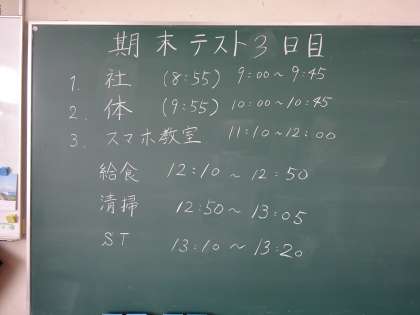 期末テスト3日目
1. 社 (8:55) 9:00～9:45
2. 体 (9:55) 10:00～10:45
3. スマホ教室 11:10～12:00
給食 12:10～12:50
清掃 12:50～13:05
ST 13:10～13:20